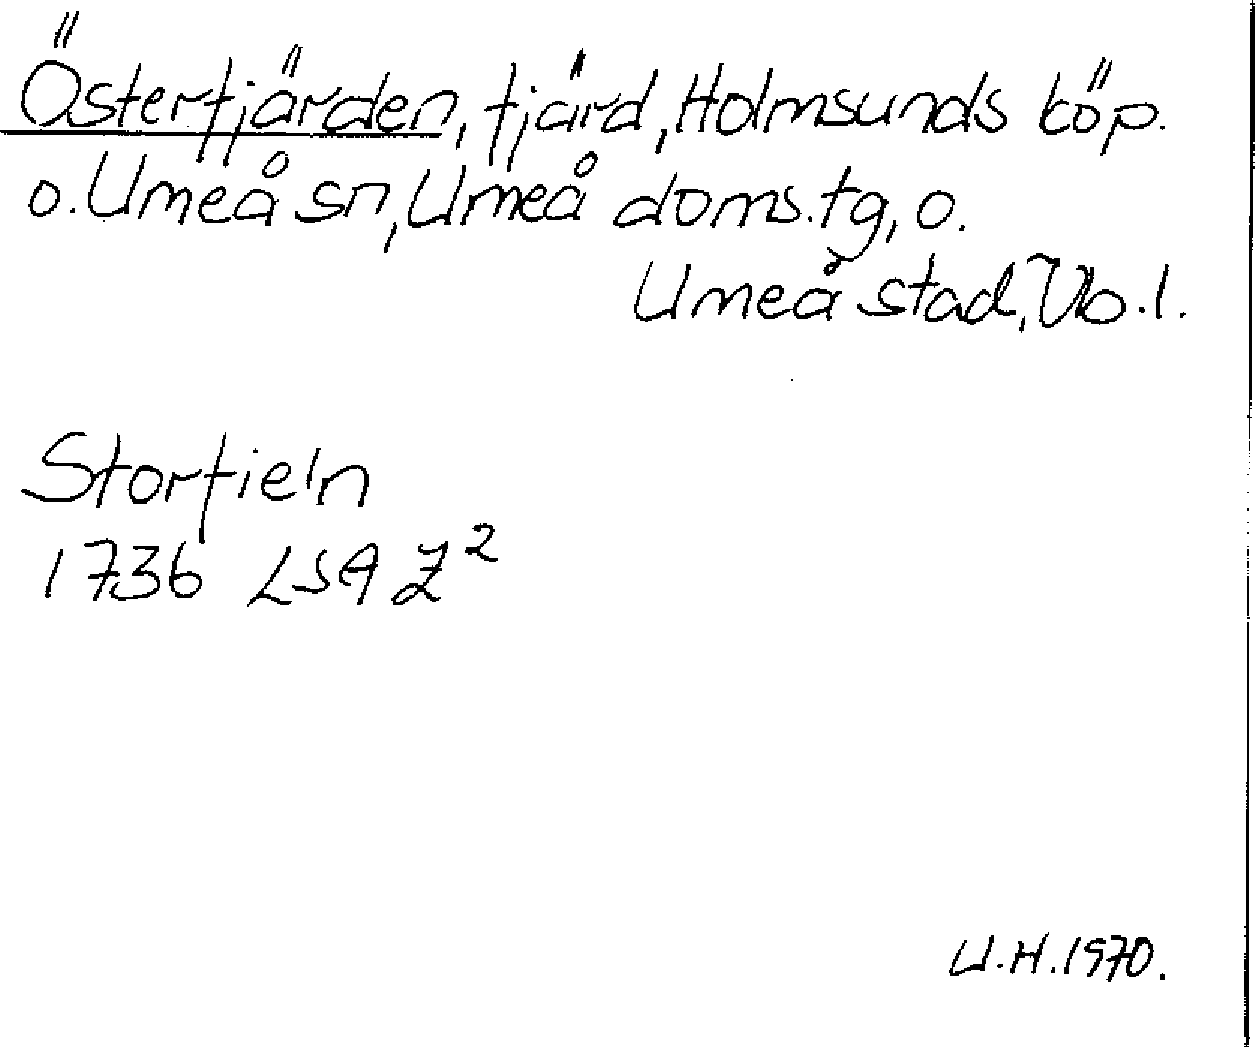 Österfjärden, fjärd, Holmsunds köp.
o. Umeå sn, Umeå doms.tg, o.
Umeå stad, Vb.l.
Storfie'n
1736 LSA Z²
U.H.1970.